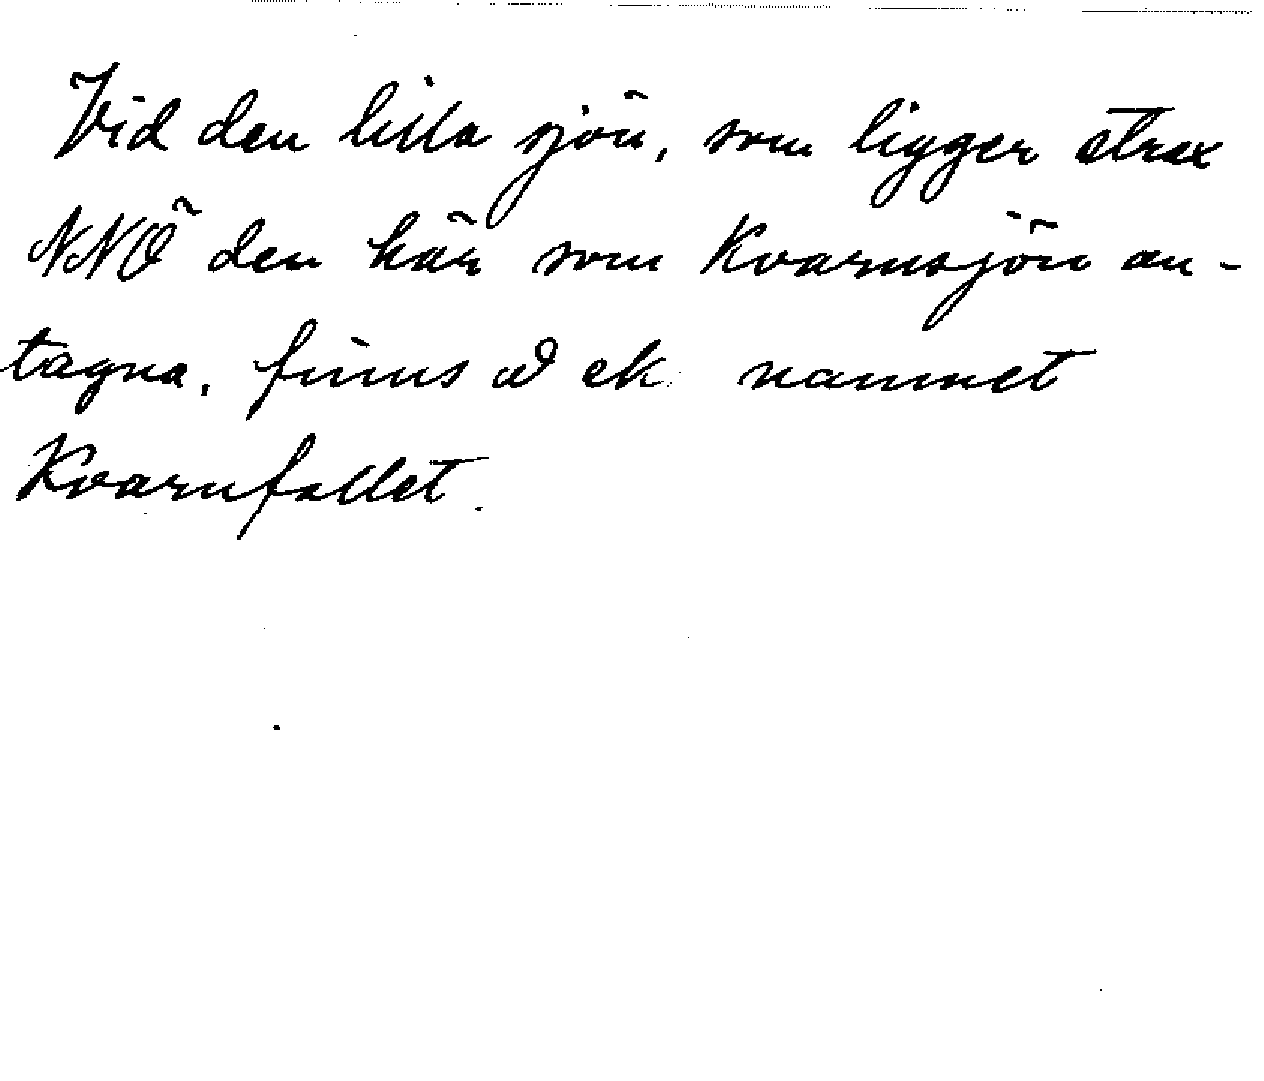 Vid den lilla sjön, som ligger strax
NNÖ den här som Kvarnsjön an-
tagna, finns å ek namnet
Kvarnfallet.